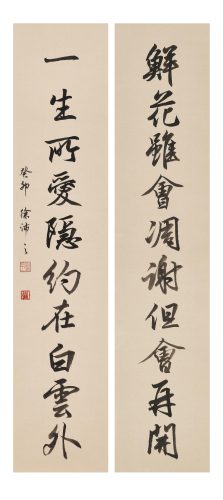 鮮花雖會凋谢但會再開
一生所愛隱約在白雲外
癸卯 徐沛之